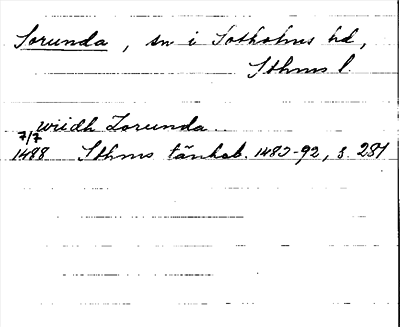 Sorunda, sn i Sotholms hd,
Sthms l.
wiidh Zorunda..
7/7
1488 Sthms tänkeb. 1483-92, s. 281